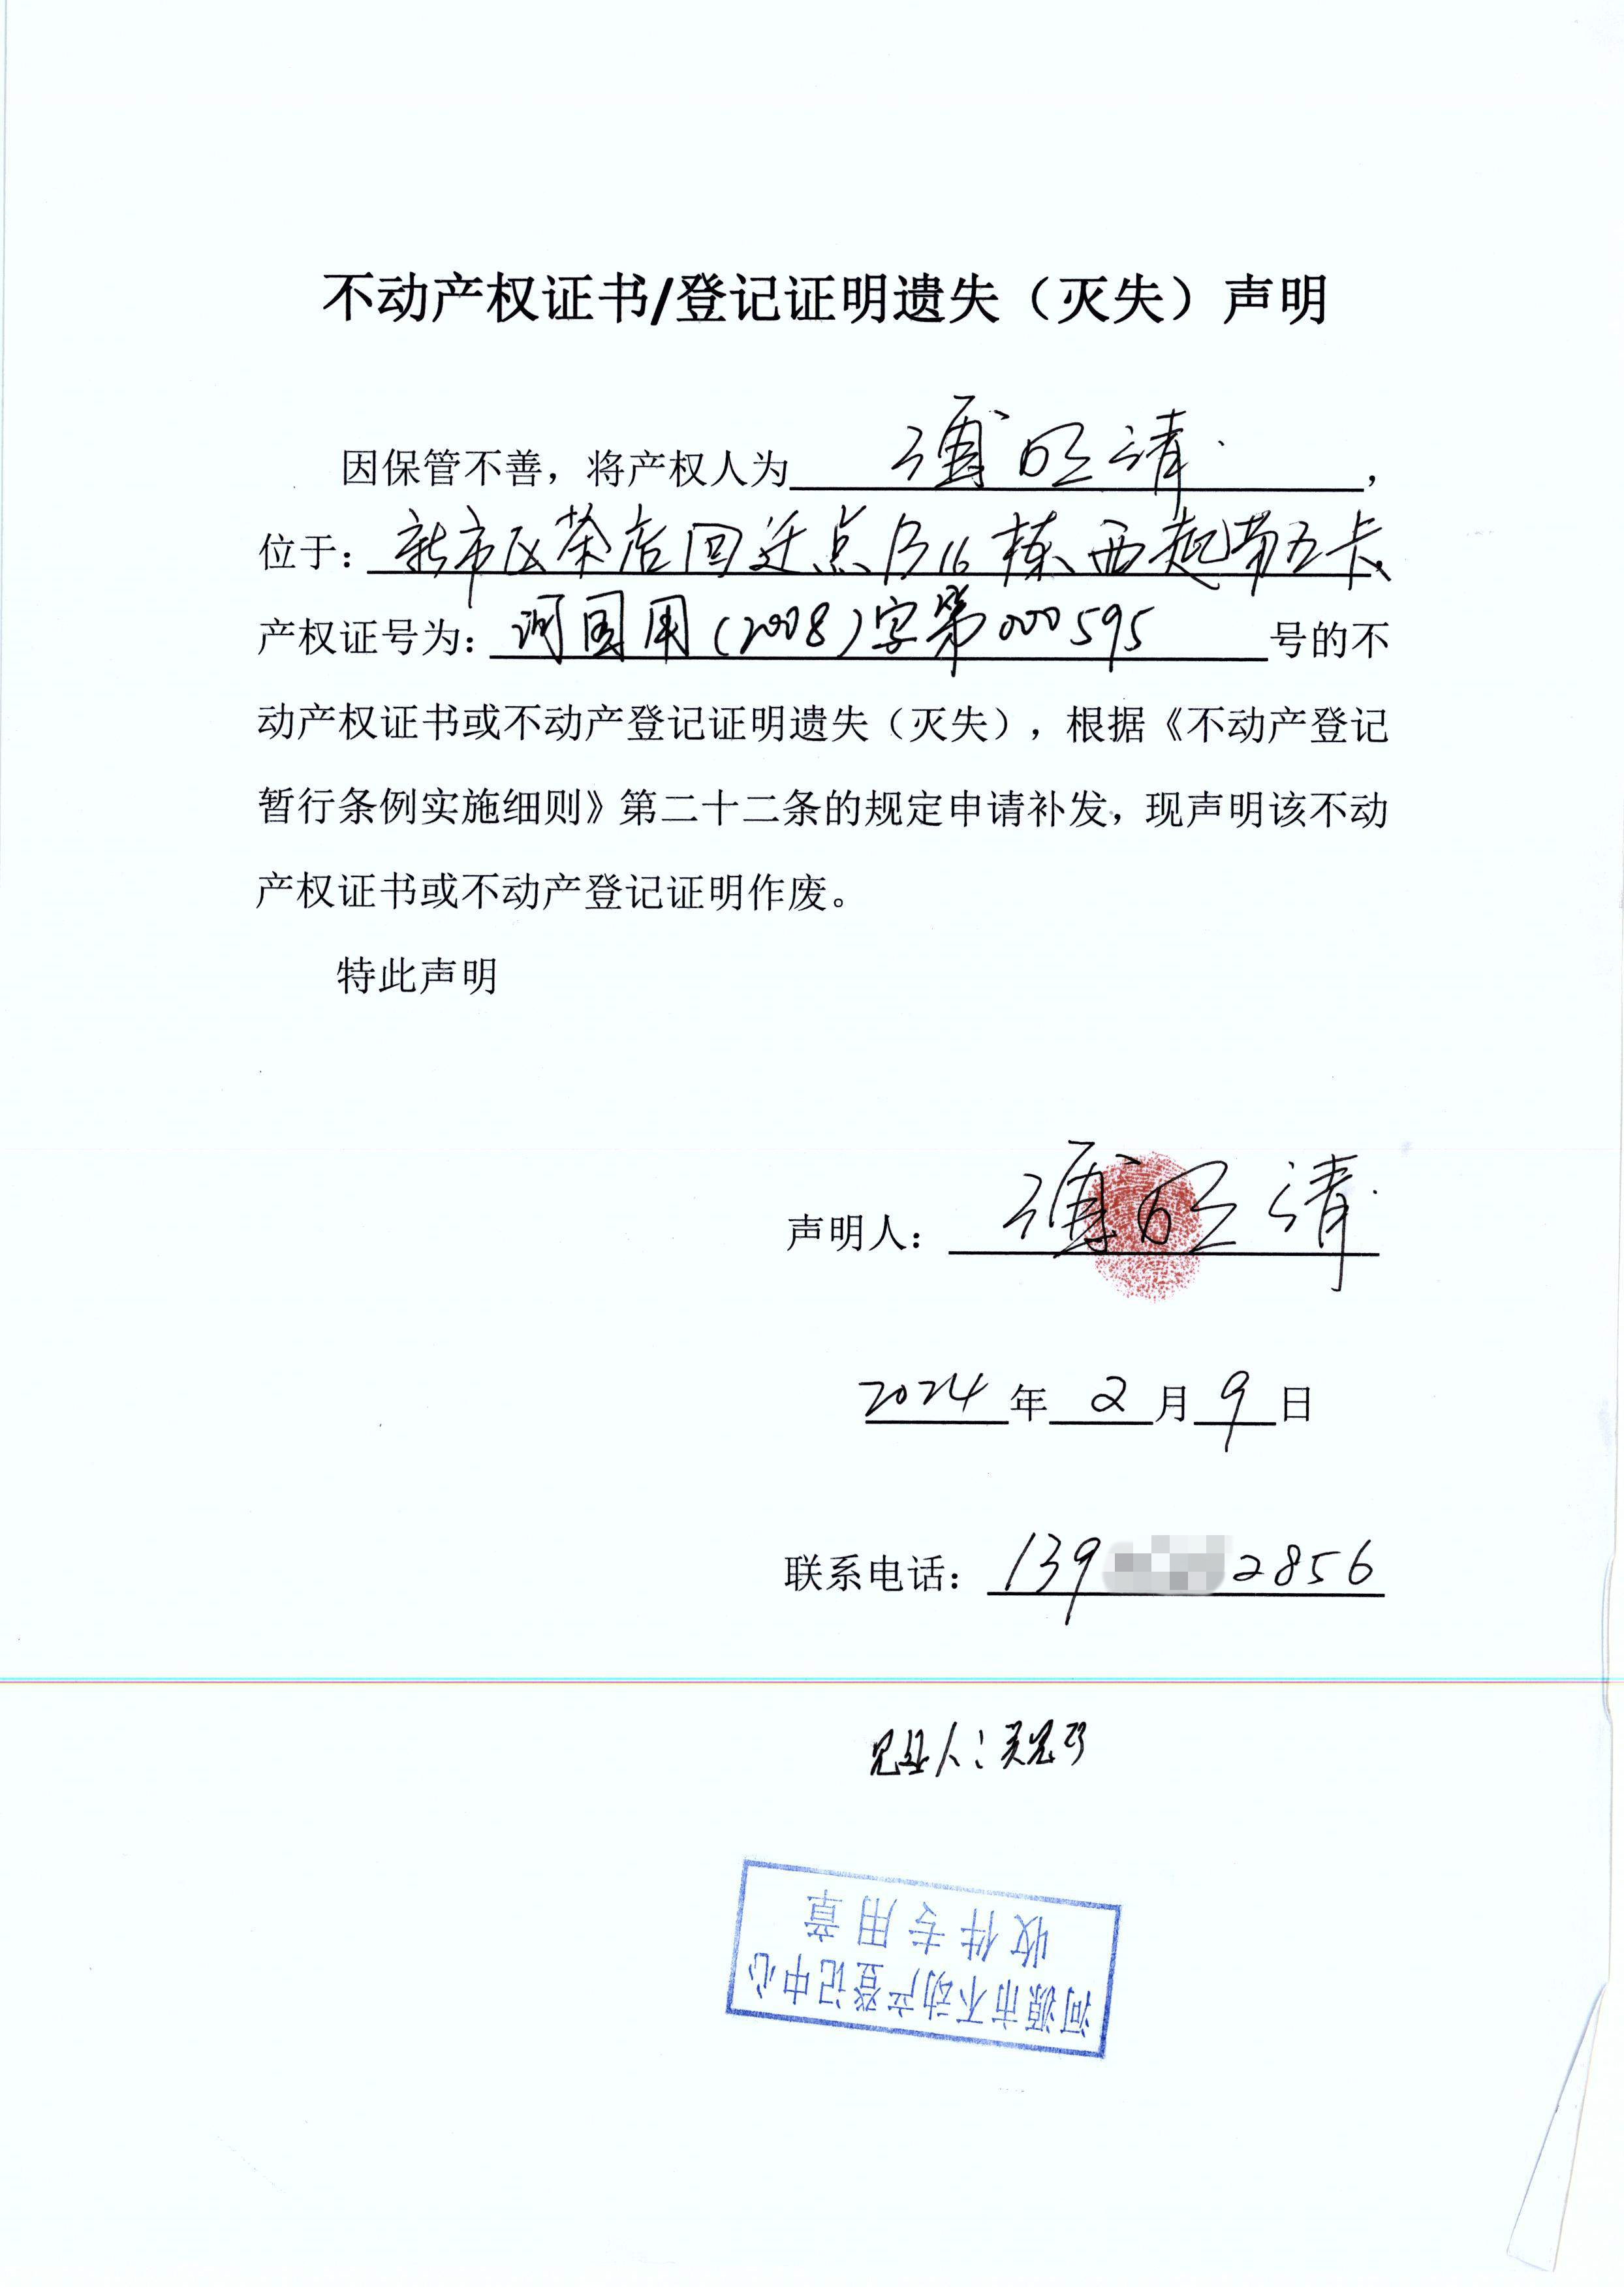 不动产权证书/登记证明遗失（灭失）声明
因保管不善，将产权人为 清，
位于：新市区茶店回迁点B16栋西起第五卡，
产权证号为：河国用(2008)字第000595号的不
动产权证书或不动产登记证明遗失（灭失），根据《不动产登记
暂行条例实施细则》第二十二条的规定申请补发，现声明该不动
产权证书或不动产登记证明作废。
特此声明
声明人： 清
2024年2月9日
联系电话：139 2856
见证人：
河源市不动产登记中心
收件专用章